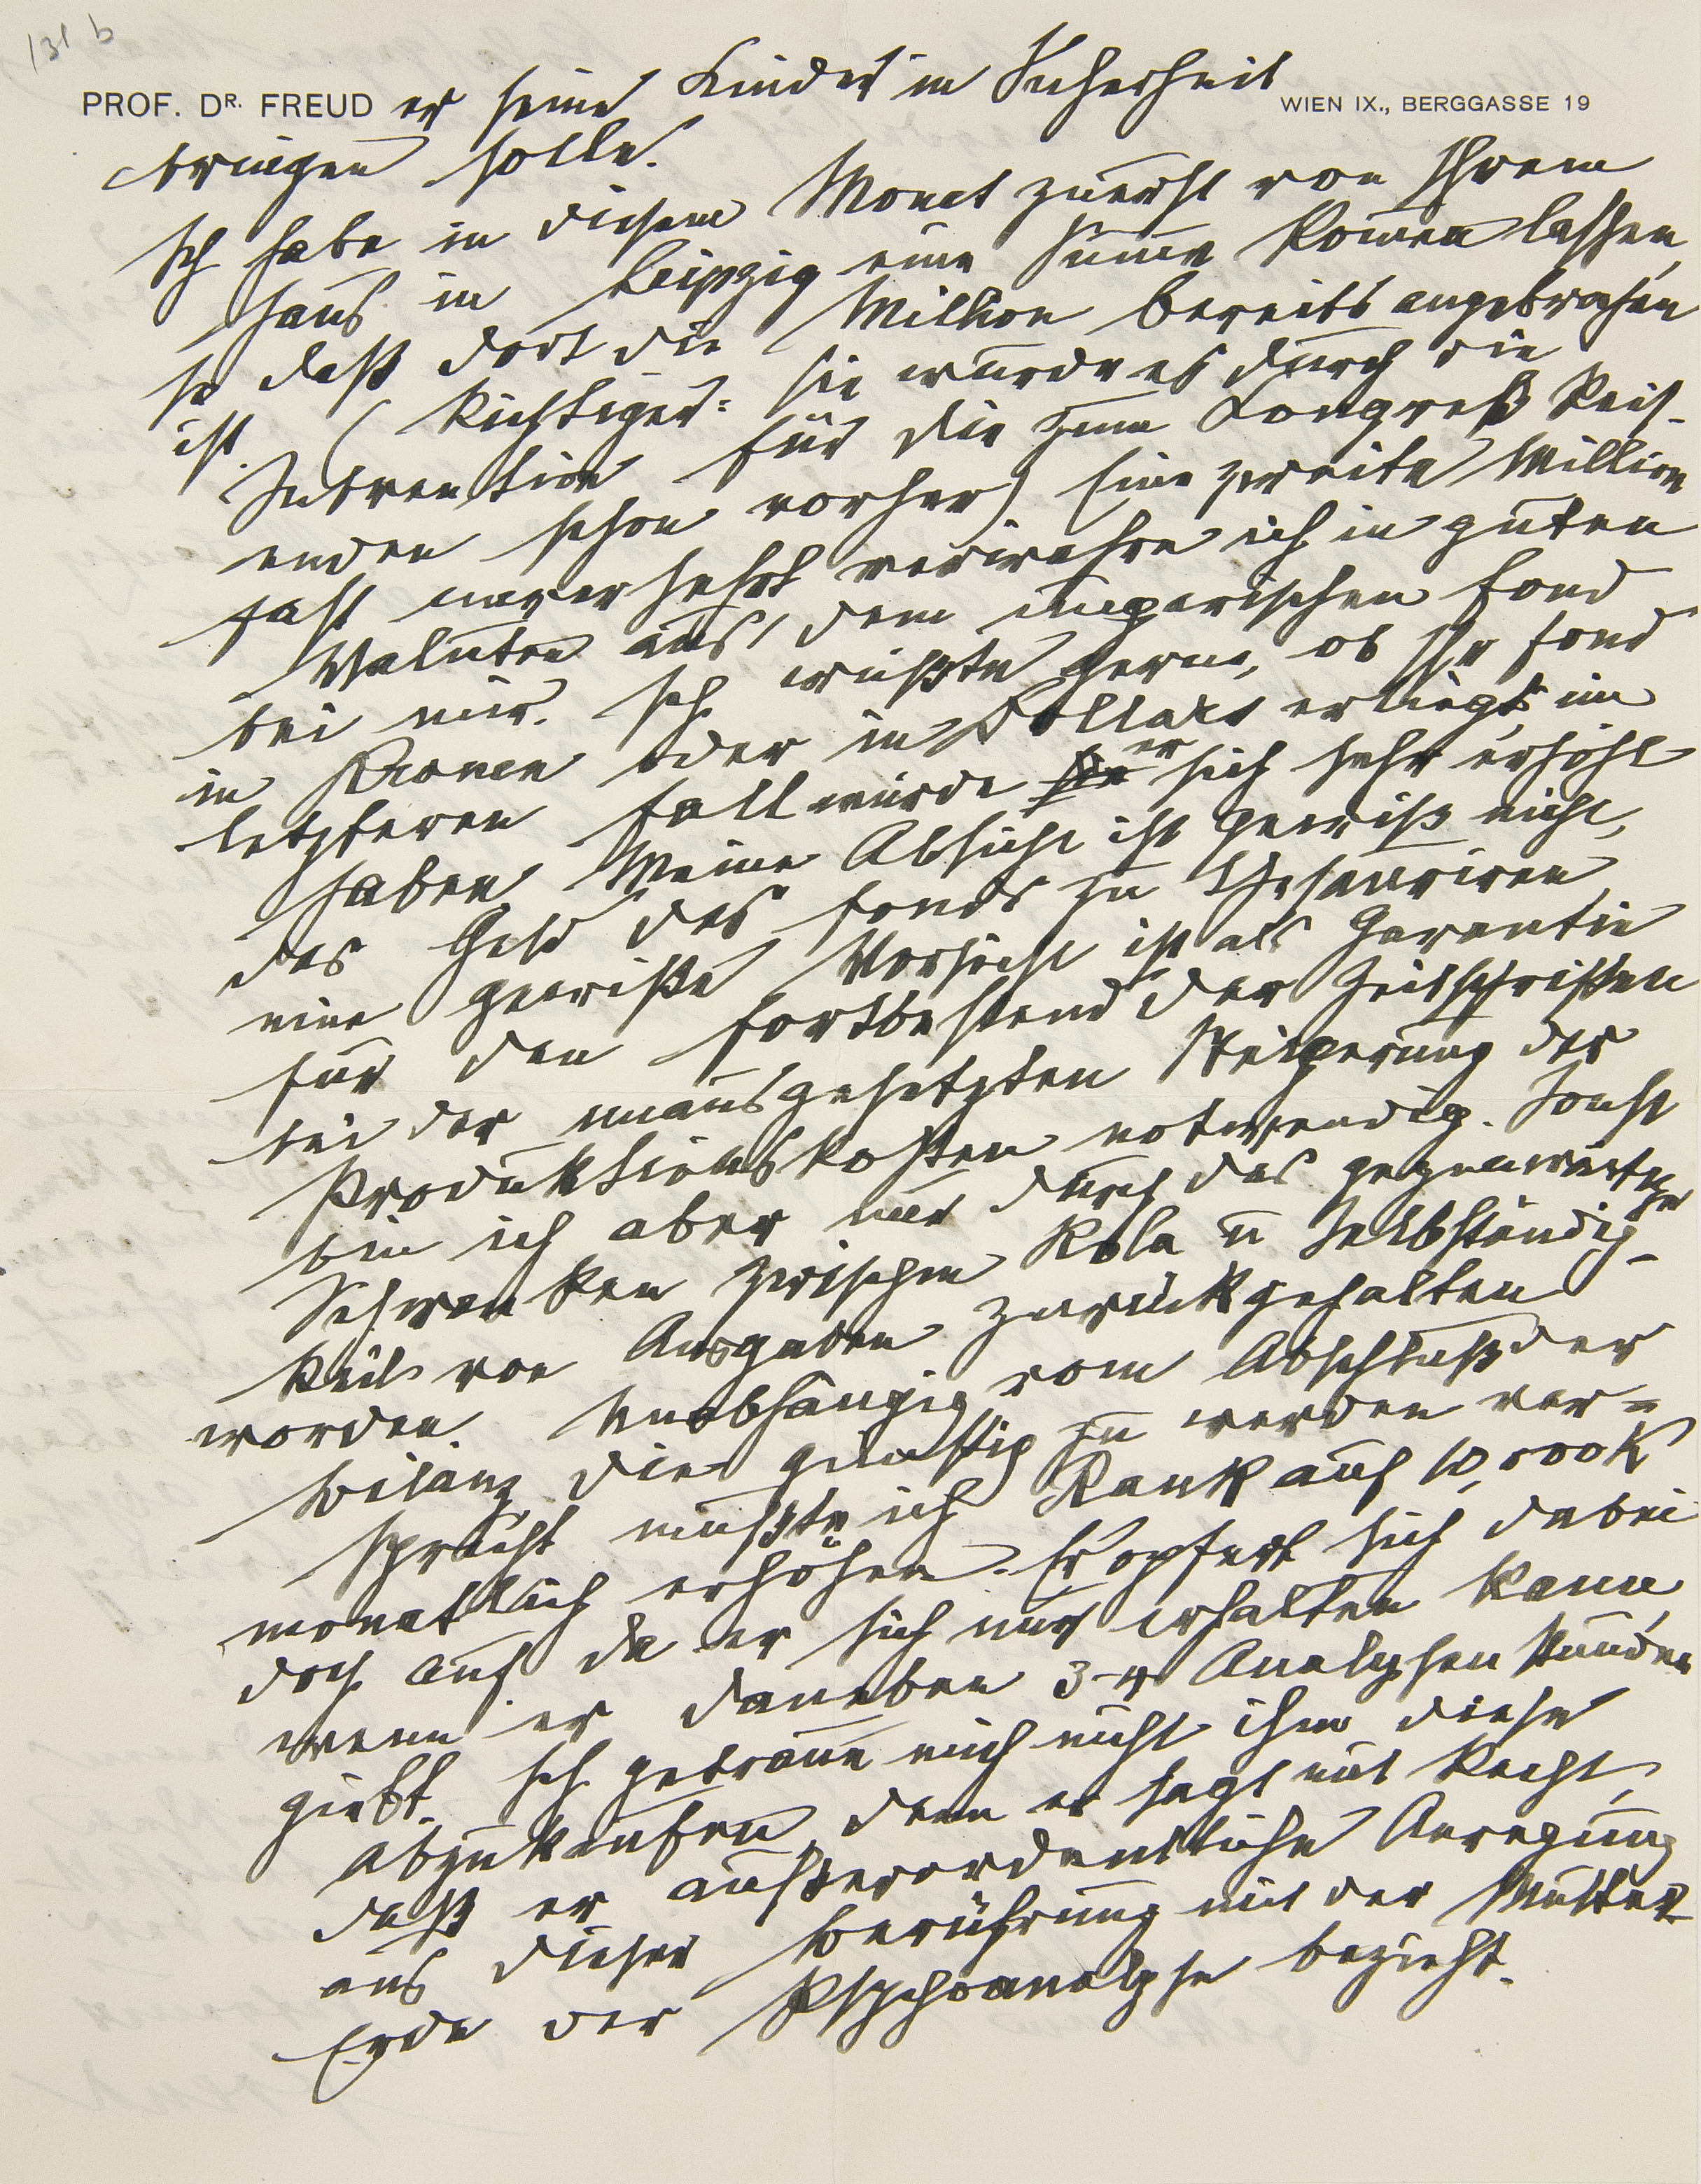 131 b
PROF. DR. FREUD er seine Kinder in Sicherheit WIEN IX., BERGGASSE 19
bringen solle.
Ich habe in diesem Monat zuerst von Ihrem
Haus in Leipzig eine Summe kom̅en lassen,
so daß dort die Million bereits angebrochen
ist. (Richtiger: sie wurde es durch die
Subvention für die zum Congreß Reis-
enden schon vorher) Eine zweite Million
fast unversehrt verwahre ich in guten
Valuten aus dem ungarischen Fond
bei mir. Ich wüßte gerne, ob Ihr Fond
in Kronen oder in Dollars erliegt, im
letzteren Fall würde er sich sehr erhöht
haben. Meine Absicht ist gewiß nicht,
das Geld des Fonds zu thesauriren,
eine gewiße Vorsicht ist als Garantie
für den Fortbestand der Zeitschriften
bei der unausgesetzten Steigerung der
Produktionskosten notwendig. Sonst
bin ich aber nur durch das gegenwärtige
Schwanken zwischen Kola u Selbständig-
keit von Ausgaben zurückgehalten
worden. Unabhängig vom Abschluß der
Bilanz, die günstig zu werden ver-
spricht mußte ich Rank auf 10,000 K
monatlich erhöhen. Er opfert sich dabei
doch auf da er sich nur erhalten kann,
wenn er daneben 3-4 Analysen Stunden
giebt. Ich getraue mich nicht ihm diese
abzukaufen, denn er sagt mit Recht,
daß er außerordentliche Anregung
aus dieser Berührung mit der Mutter
Erde der Psychoanalyse bezieht.